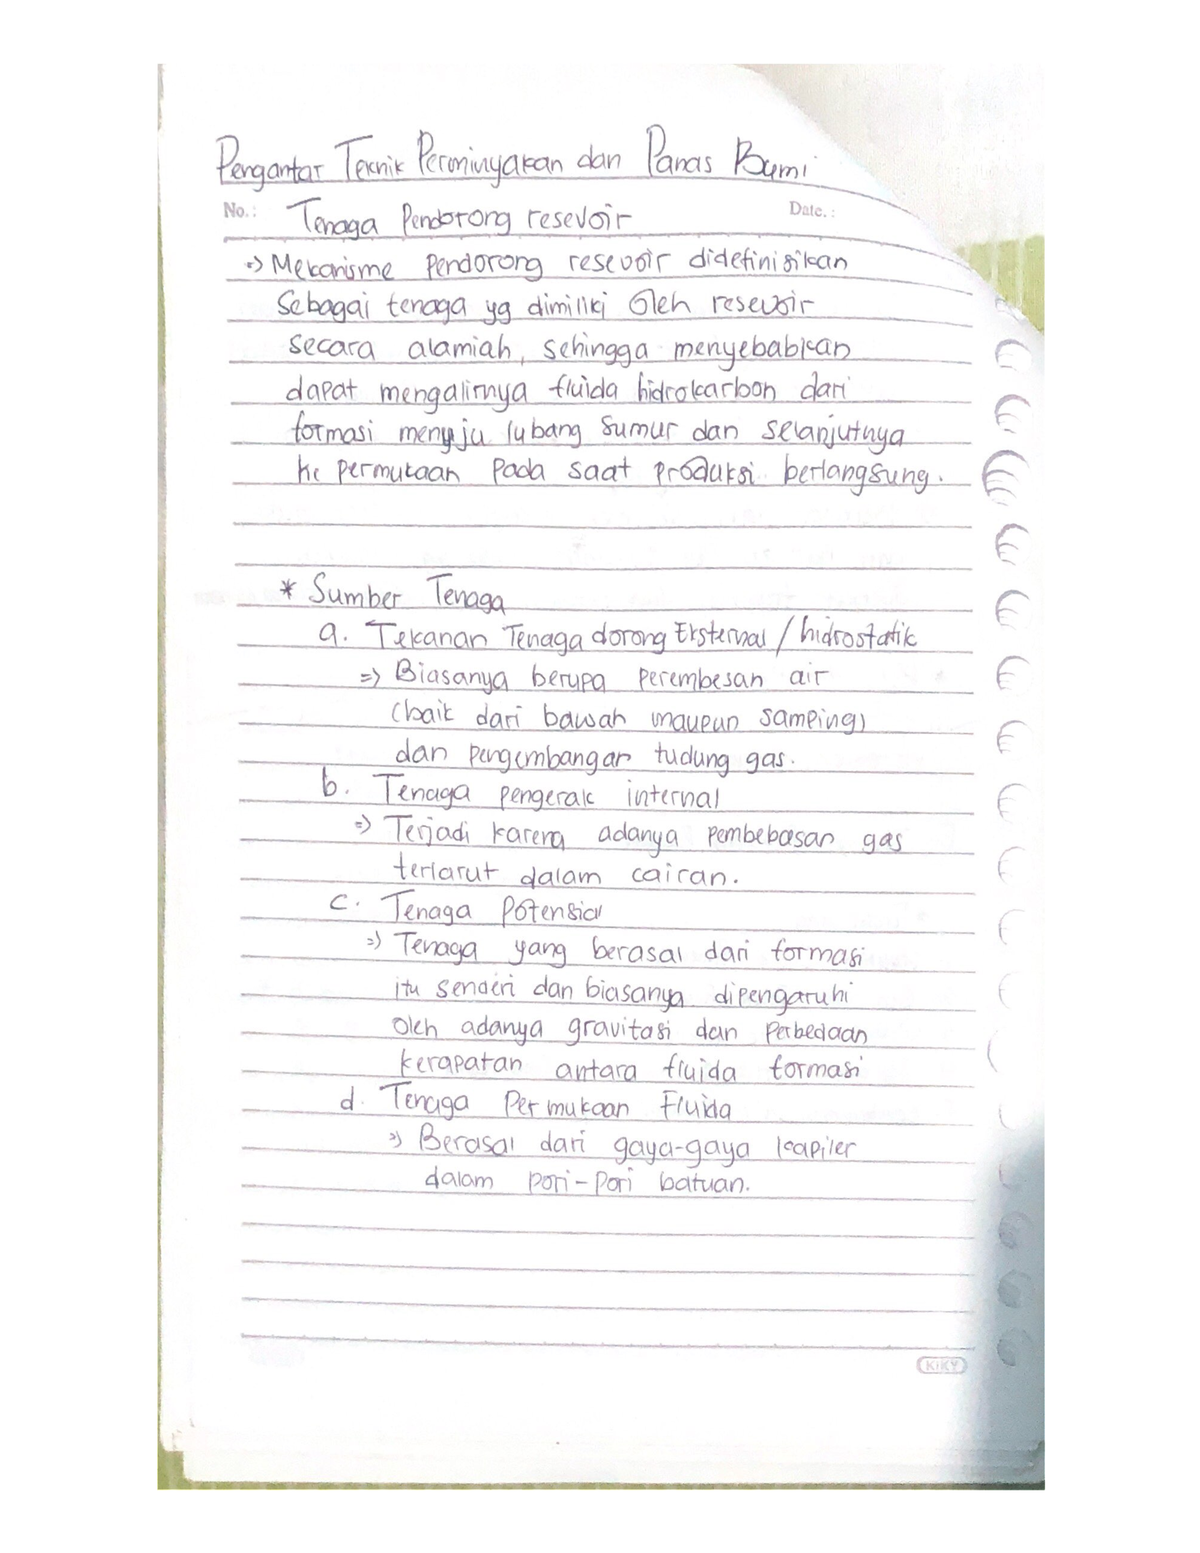 Pengantar Teknik Perminyakan dan Panas Bumi
No.: Tenaga Pendorong resevoir Date.:
=> Mekanisme Pendorong resevoir didefinisikan
Sebagai tenaga yg dimiliki Oleh resevoir
secara alamiah, sehingga menyebabkan
dapat mengalirnya fluida hidrokarbon dari
formasi menuju lubang Sumur dan selanjutnya
ke permukaan Pada saat produksi berlangsung.
* Sumber Tenaga
a. Tekanan Tenaga dorong Eksternal / hidrostatik
=> Biasanya berupa perembesan air
(baik dari bawah maupun samping)
dan pengembangan tudung gas.
b. Tenaga pengerak internal
=> Terjadi karena adanya pembebasan gas
terlarut dalam cairan.
c. Tenaga Potensial
=> Tenaga yang berasal dari formasi
itu senderi dan biasanya dipengaruhi
oleh adanya gravitasi dan Perbedaan
kerapatan antara fluida formasi
d. Tenaga Permukaan Fluida
=> Berasal dari gaya-gaya kapiler
dalam pori-pori batuan.
KIKY